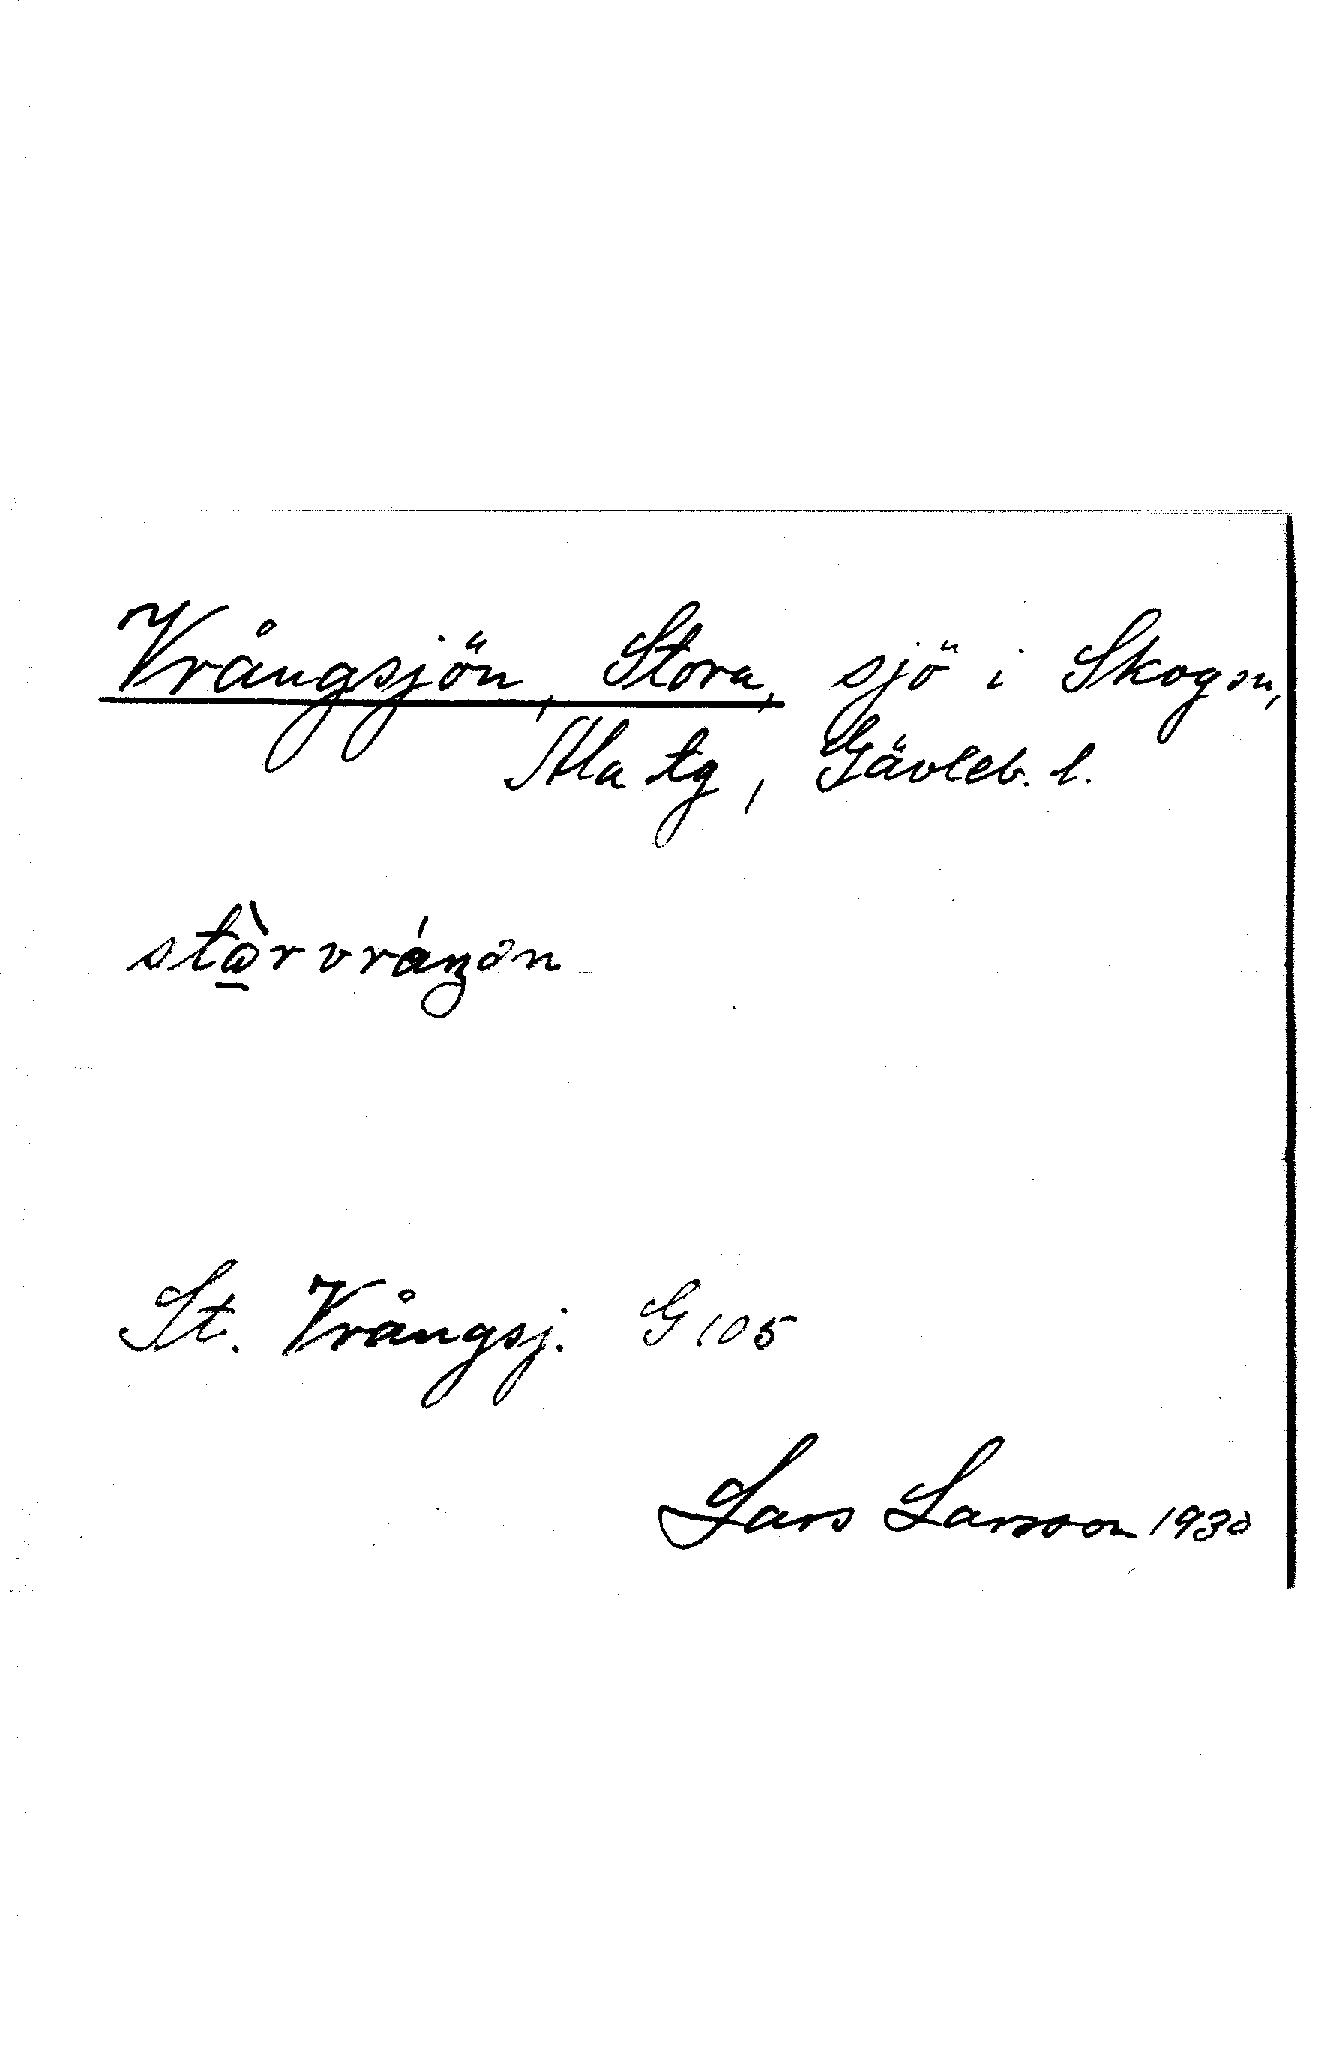 Vrångsjön, Stora, sjö i Skog sn,
Ala tg, Gävleb. l.
stὼ̱rvráŋən
St. Vrångsj. G 105
Lars Larsson 1930